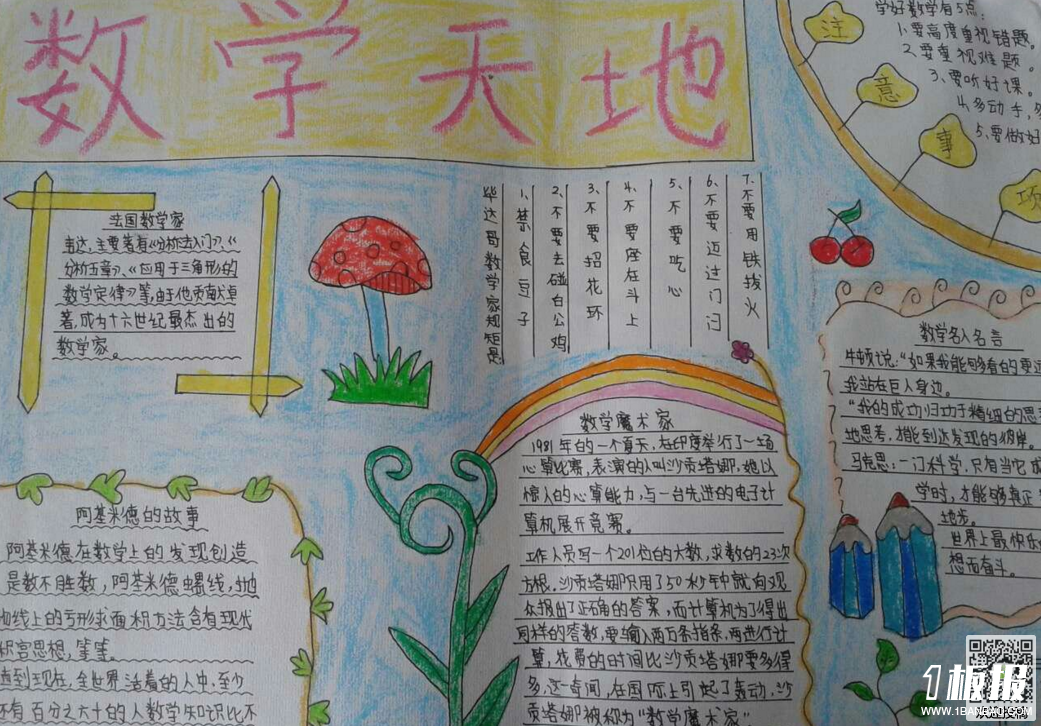 数学天地
注意事项
学好数学有5点：
1.要高度重视错题。
2.要重视难题。
3.要听好课。
4.多动手，多
5.要做好
法国数学家
韦达，主要著有《分析法入门》、《
分析五章》、《应用于三角形的
数学定律》等，由于他贡献大卓
著，成为十六世纪最杰出的
数学家。
毕达哥数学家规矩是
1、禁食豆子
2、不要去碰白公鸡
3、不要招花环
4、不要座在斗上
5、不要吃心
6、不要迈过门闩
7.不要用铁拔火
数学名人名言
牛顿说：“如果我能够看的更远
我站在巨人身边。
“我的成功归功于精细的思考
地思考，才能到达发现的彼岸。
马克思：一门科学，只有当它成
学时，才能够真正
地步。
世界上最快乐
想而奋斗。
数学魔术家
1981年的一个夏天，在印度举行了一场
心算比赛，表演的人叫沙贡塔娜，她以
惊人的心算能力，与一台先进的电子计
算机展开竞赛。
工作人员写一个201位的大数，求数的23次
方根。沙贡塔娜只用了50秒钟就向观
众报出了正确的答案，而计算机为了得出
同样的答数，要输入两万条指条，再进行计
算，花费的时间比沙贡塔娜要多得
多。这奇闻，在国际上引起了轰动，沙
贡塔娜被称为“数学魔术家”
阿基米德的故事
阿基米德在数学上的发现创造
是数不胜数，阿基米德螺线，抛
物线上的弓形求面积方法含有现代
积宫思想，等等。
直到现在，全世界活着的人中，至少
还有百分之六十的人数学知识比不
1板报
WWW.1BANBAO.COM